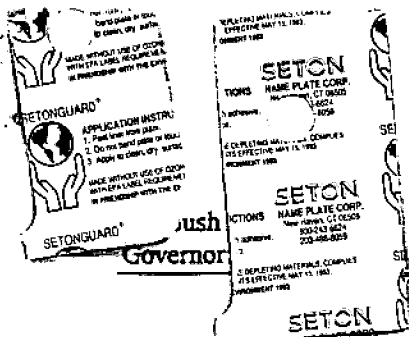 bend plate or touc
to clean, dry surfac
MADE WITHOUT USE OF OZON
WITH EPA LABEL REQUIREME
IN FRIENDSHIP WITH THE ENVI
SETONGUARD®
APPLICATION INSTRU
1. Peel liner from plate.
2. Do not bend plate or touc
3. Apply to clean, dry surfac
MADE WITHOUT USE OF OZON
WITH EPA LABEL REQUIREMENT
IN FRIENDSHIP WITH THE EN
SETONGUARD®
ush
Governor
DEPLETING MATERIALS, COMPLIES
EFFECTIVE MAY 15, 1993.
ONMENT 1993
SETON
NAME PLATE CORP.
CT 06505
TIONS
adhesive.
-6624
-8059
E DEPLETING MATERIALS, COMPLIES
TS EFFECTIVE MAY 15, 1993.
VIRONMENT 1993
SETON
NAME PLATE CORP.
New Haven, CT 06505
800-243-6624
203-488-8059
CTIONS
adhesive.
E DEPLETING MATERIALS, COMPLIES
ITS EFFECTIVE MAY 15, 1993.
VIRONMENT 1993
SETON